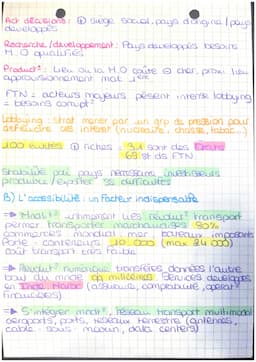 Act décisions : ① siège social, pays d'origine / pays
développés
Recherche / développement : Pays développés besoins
M.O qualifiés
Product° : Lieu où la M.O coûte ⊖ cher, proxi lieu
approvisionnement mat
FTN = acteurs majeurs pèsent intense lobbying
= besoins
Lobbying : strat mener par un grp de pression pour
défendre ses intérêt (nucléaire, chasse, tabac...)
100 entités ⊕ riches = 31 sont des États
69 st des FTN
Stabilité pol pays nécessaire investisseurs
produire / exporter ss difficultés
B) L'accessibilité : un facteur indispensable
révolut° transport
permet transporter marchandises 90%
commerces mondial : mer bateaux imposants
Porte-conteneurs 10 000 (max 24 000)
coût transport très faible
⇒ Révolut° numérique transferes données l'autre
bou du monde services developpés
en Inde, Maroc (assurance, comptabilité, opérat°
financières)
⇒ S'intégrer mondi°, réseau transport multimodal
aéroports, ports, réseaux terrestre (antennes,
cable sous marin, data centers)